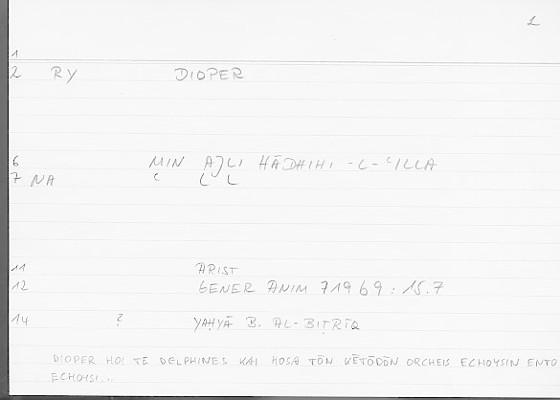 2
1
2 RY DIOPER
6 MIN AJLI HĀDHIHI -L-ʿILLA
7 NA ʿ L L
11 ARIST
12 GENER ANIM 719 b 9 : 15.7
14 ? YAḤYĀ B. AL-BIṬRĪQ
DIOPER HOI TE DELPHINES KAI HOSA TŌN KĒTŌDŌN ORCHEIS ECHOYSIN ENTO
ECHOYSI...